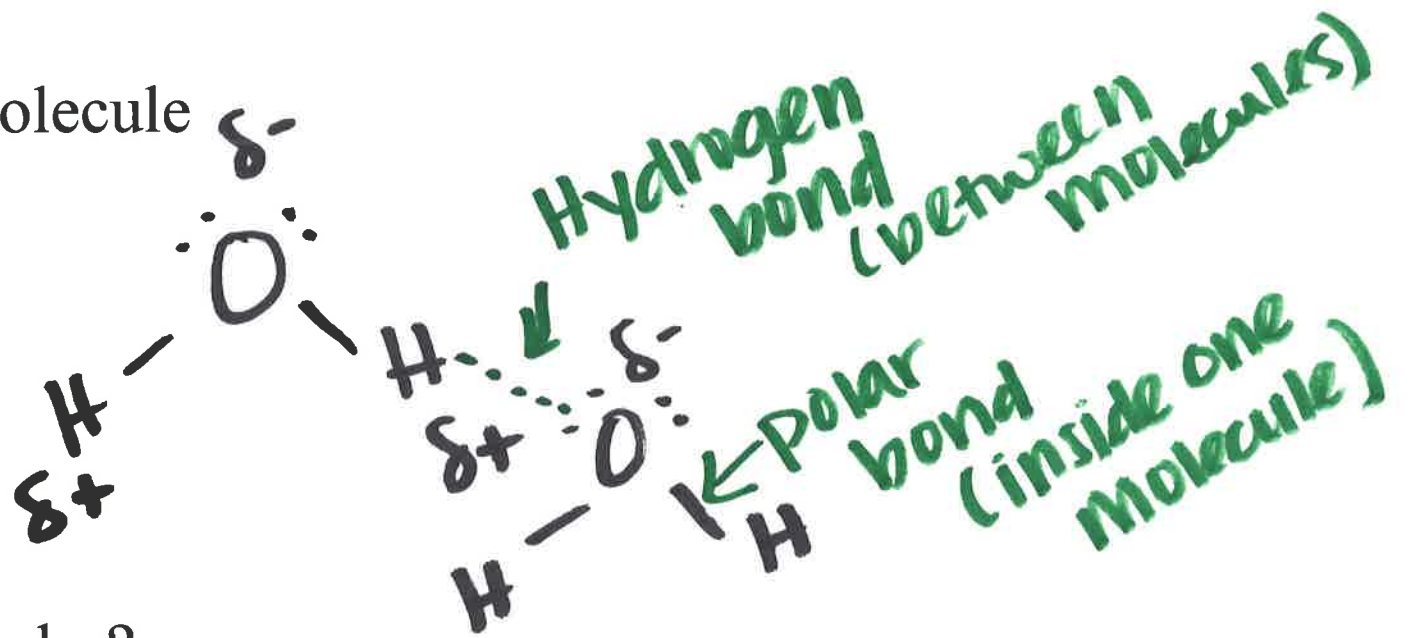 olecule
δ-
O
H
δ+
H
δ+
Hydrogen
bond
(between
molecules)
δ-
O
H
H
polar
bond
(inside one
molecule)